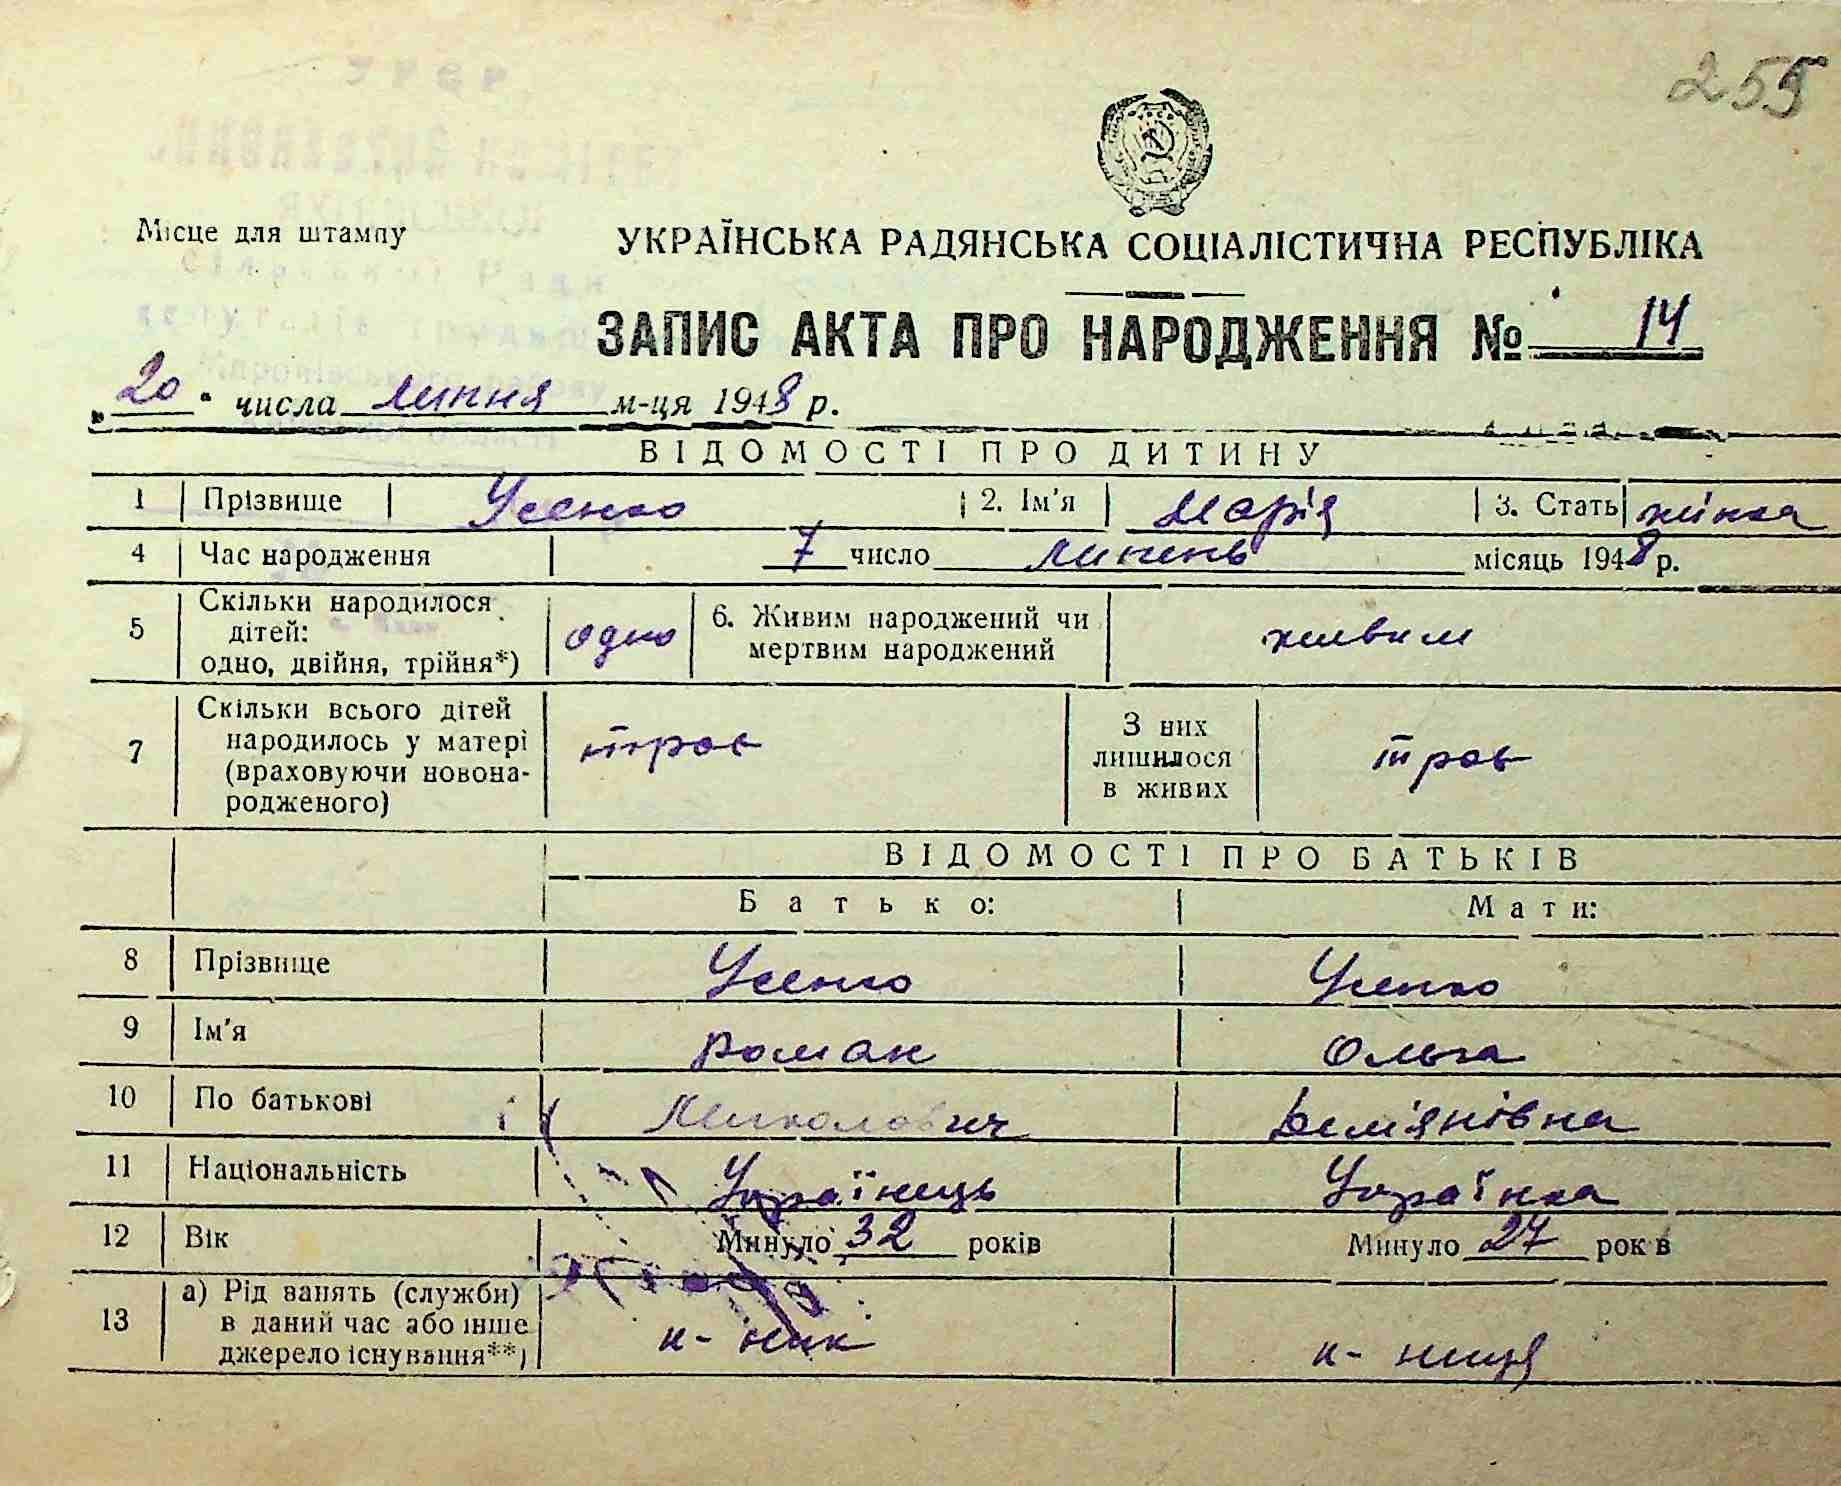 255
Місце для штампу
УКРАЇНСЬКА РАДЯНСЬКА СОЦІАЛІСТИЧНА РЕСПУБЛІКА
ЗАПИС АКТА ПРО НАРОДЖЕННЯ № 14
„20“ числа липня м-ця 1948 р.
ВІДОМОСТІ ПРО ДИТИНУ
1 Прізвище Усенко 2. Ім'я Марія 3. Стать жінка
4 Час народження 7 число липень місяць 1948 р.
5 Скільки народилося дітей: одно, двійня, трійня*) одно 6. Живим народжений чи мертвим народжений живим
7 Скільки всього дітей народилось у матері (враховуючи новонародженого) троє З них лишилося в живих троє
ВІДОМОСТІ ПРО БАТЬКІВ
Батько: Мати:
8 Прізвище Усенко Усенко
9 Ім'я Роман Ольга
10 По батькові Миколович Демʼянівна
11 Національність Українець Українка
12 Вік Минуло 32 років Минуло 27 років
13 а) Рід занять (служби) в даний час або інше джерело існування**) к-ник к-ниця